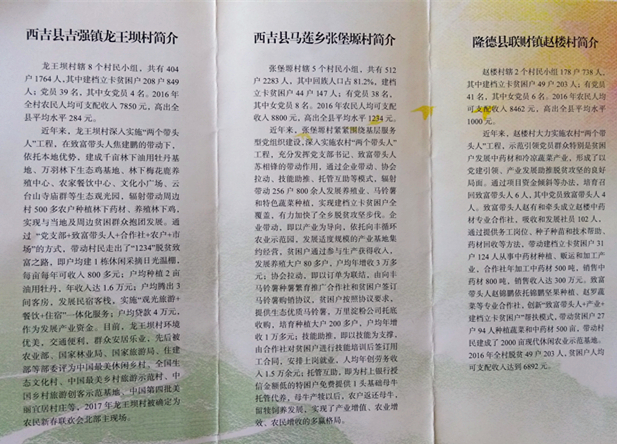 西吉县吉强镇龙王坝村简介
龙王坝村辖 8 个村民小组，共有 404
户 1764 人，其中建档立卡贫困户 208 户 849
人；党员 39 名，其中女党员 4 名。2016 年
全村农民人均可支配收入 7850 元，高出全
县平均水平 284 元。
近年来，龙王坝村深入实施“两个带头
人”工程，在致富带头人焦建鹏的带动下，
依托本地优势，建成千亩林下油用牡丹基
地、万羽林下生态鸡基地、林下梅花鹿养
殖中心、农家餐饮中心、文化小广场、云
台山寺庙群等生态观光园，辐射带动周边
村 500 多农户种植林下药材、养殖林下鸡，
实现与当地及周边贫困群众抱团发展。通
过 “党支部+致富带头人+合作社+农户+市
场”的方式，带动村民走出了“1234”脱贫致
富之路，即户均建 1 栋休闲采摘日光温棚，
每亩每年可收入 800 多元；户均种植 2 亩
油用牡丹，年收入达 1.6 万元；户均腾出 3
间客房，发展民宿客栈，实施“观光旅游+
餐饮+住宿”一体化服务；户均贷款 4 万元，
作为发展产业资金。目前，龙王坝村环境
优美，交通便利，群众安居乐业，先后被
农业部、国家林业局、国家旅游局、住建
部等部委评为中国最美休闲乡村、全国生
态文化村、中国最美乡村旅游示范村、中
国乡村旅游创客示范基地、中国第四批美
丽宜居村庄等，2017 年龙王坝村被确定为
农民新春联欢会北部主现场。
西吉县马莲乡张堡塬村简介
张堡塬村辖 5 个村民小组，共有 512
户 2283 人，其中回族人口占 81.2%，建档
立卡贫困户 44 户 147 人；有党员 38 名，
其中女党员 8 名。2016 年农民人均可支配
收入 8800 元，高出全县平均水平 1234 元。
近年来，张堡塬村紧紧围绕基层服务
型党组织建设，深入实施农村“两个带头人”
工程，充分发挥党支部书记、致富带头人
苏相锋的带动作用，通过企业带动、协会
拉动、技能助推、托管互助等模式，辐射
带动 256 户 800 余人发展养殖业、马铃薯
和特色蔬菜种植，实现建立卡贫困户全
覆盖，有力加快了全乡脱贫攻坚步伐。企
业带动，即以产业为导向，依托向丰循环
农业示范园，发展适度规模的产业基地集
约经营，贫困户通过参与生产获得收入，
发展养殖大户 80 多户，户均年增收 3 万多
元；协会拉动，即以订单为联结，由向丰
马铃薯种薯繁育推广合作社和贫困户签订
马铃薯购销协议，贫困户按照协议要求，
提供生态优质马铃薯，万里淀粉公司托底
收购，培育种植大户 200 多户，户均年增
收 1 万多元；技能助推，即以技能为支撑，
由合作社对贫困户进行技能培训后签订用
工合同，安排上岗就业，人均年创劳务收
入 1.5 万余元；托管互助，即为村上银行授
信金额低的特困户免费提供 1 头基础母牛
托管代养，母牛产犊以后，农户返还母牛，
留犊饲养发展，实现了产业增值、农业增
效、农民增收的多赢格局。
隆德县联财镇赵楼村简介
赵楼村辖 2 个村民小组 178 户 738 人，
其中建档立卡贫困户 49 户 203 人；有党员
41 名，其中女党员 6 名。2016 年农民人均
可支配收入 8462 元，高出全县平均水平
1000 元。
近年来，赵楼村大力实施农村“两个带
头人”工程，示范引领党员群众特别是贫困
户发展中药材和冷凉蔬菜产业，形成了以
党建引领、产业发展助推脱贫攻坚的良好
局面。通过项目资金倾斜等办法，培育召
回致富带头人 6 人，其中党员致富带头人 4
人。致富带头人赵有和牵头成立赵楼中药
材专业合作社，吸收和发展社员 102 人，
通过提供务工岗位、种子种苗和技术帮助、
药材回收等方法，带动建档立卡贫困户 31
户 124 人从事中药材种植、贩运和加工产
业，合作社年加工中药材 500 吨，销售中
药材 800 吨，销售收入达 300 万元。致富
带头人赵锦鹏依托锦鹏坚果种植、赵罗蔬
菜等专业合作社，创新“致富带头人+产业+
建档立卡贫困户”帮扶模式，带动贫困户 27
户 94 人种植蔬菜和中药材 500 亩，带动村
民建成了 2000 亩现代休闲农业示范基地。
2016 年全村脱贫 49 户 203 人，贫困户人均
可支配收入达到 6892 元。